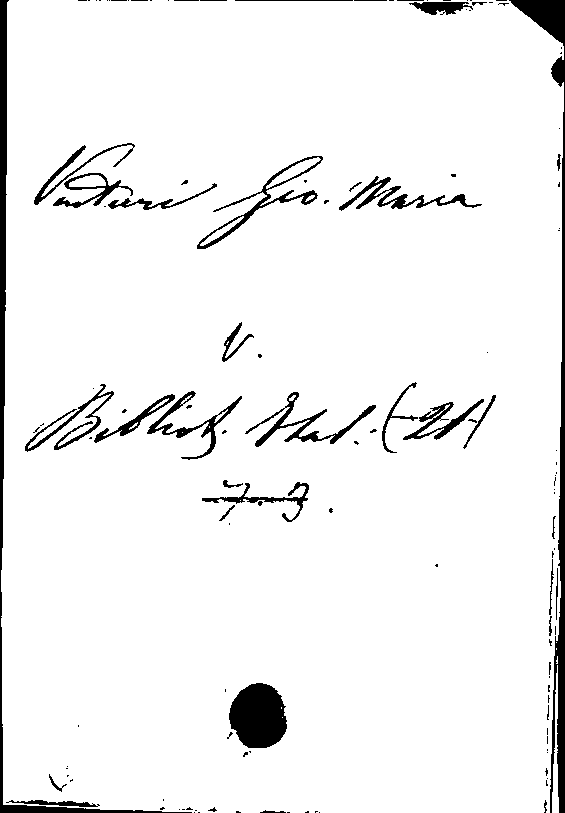 Venturi Gio. Maria
V.
Bibliot. Ital. (21)
7. 3.